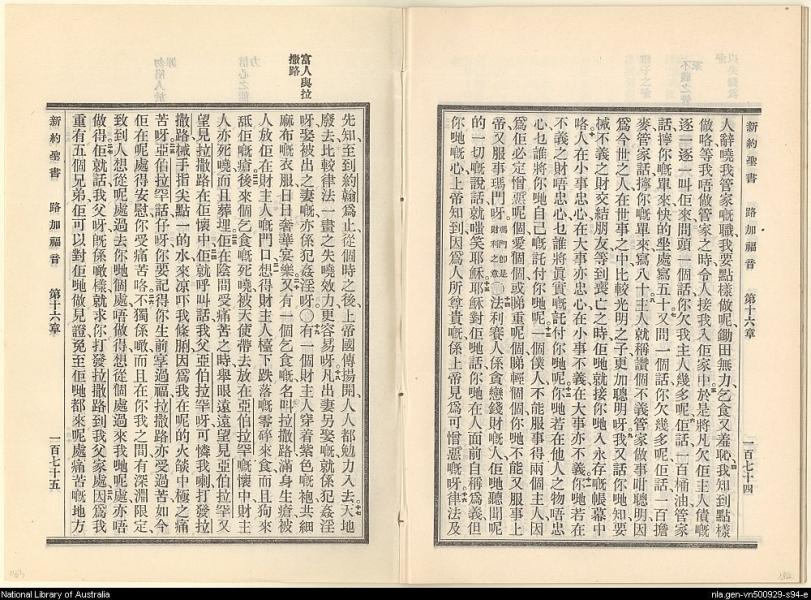 新約聖書 路加福音 第十六章 一百七十四
人辭嘵我管家嘅職我要點樣做呢鋤田無力乞食又羞恥我知到點樣
做咯等我唔做管家之時令人接我入佢家中於是將凡欠佢主人債嘅
逐一逐一叫佢來問頭一個話你欠我主人幾多呢佢話一百桶油管家
話擰你嘅單來快的坐處寫五十又問一個話你欠幾多呢佢話一百擔
麥管家話擰你嘅單來寫八十主人就稱讚個不義管家做事咁聰明因
爲今世之人在世事之中比較光明之子更加聰明呀我又話你哋知要
械不義之財交結朋友等到喪亡之時佢哋就接你哋入永存嘅帳幕中
咯人在小事忠心在大事亦忠心在小事不義在大事亦不義你哋若在
不義之財唔忠心乜誰將眞實嘅託付你哋呢你哋若在他人之物唔忠
心乜誰將你哋自己嘅託付你哋呢一個僕人不能服事得兩個主人因
爲佢必定憎惡呢個愛個個或睇重呢個睇輕個個你哋不能又服事上
帝又服事瑪門呀瑪門卽是財利之意〇法利賽人係貪戀錢財嘅人佢哋聽聞呢
的一切嘅說話就嗤笑耶穌耶穌對佢哋話你哋在人面前自稱爲義但
你哋嘅心上帝知到因爲人所尊貴嘅係上帝見爲可憎惡嘅呀律法及
富人與拉
撒路
先知至到約翰爲止從個時之後上帝國傳揚開人人都勉力入去天地
廢去比較律法一畫之失嘵效力更容易呀凡出妻另娶嘅就係犯姦淫
呀娶被出之妻嘅亦係犯姦淫呀〇有一個財主人穿着紫色嘅袍共細
麻布嘅衣服日日奢華宴樂又有一個乞食嘅名叫拉撒路滿身生瘡被
人放佢在財主人嘅門口想得財主人檯下跌落嘅零碎來食而且狗來
舐佢嘅瘡後來個乞食嘅死嘵被天使帶去放在亞伯拉罕嘅懷中財主
人亦死嘵而且葬埋佢在陰間受痛苦之時舉眼遠遠望見亞伯拉罕又
望見拉撒路在佢懷中佢就呼叫話我父亞伯拉罕呀可憐我喇打發拉
撒路械手指尖點一的水來凉吓我條脷因爲我在呢的火燄中極之痛
苦呀亞伯拉罕話仔呀你要記得你生前享過福拉撒路亦受過苦如今
佢在呢處得安慰你受痛苦咯不獨係噉而且在你我之間有深淵限定
致到人想從呢處過去你哋個處唔做得想從個處過來我哋呢處亦唔
做得佢就話我父呀旣係噉樣就求你打發拉撒路到我父家處因爲我
重有五個兄弟佢可以對佢哋做見證免至佢哋都來呢處痛苦嘅地方
新約聖書 路加福音 第十六章 一百七十五
National Library of Australia
nla.gen-vn500929-s94-e